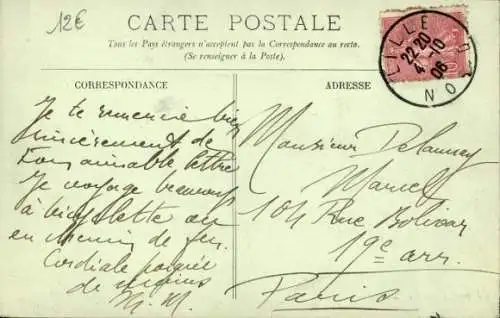 12€
CARTE POSTALE
Tous les Pays étrangers n'acceptent pas la Correspondance au recto.
(Se renseigner à la Poste).
CORRESPONDANCE
Je te remercie bien
sincèrement de
ton aimable lettre
Je voyage
à bicyclette au
en chemin de fer.
Cordiale poignée
de mains
M. M.
ADRESSE
Monsieur Delaunay
Marcel
104 Rue Bolivar
19e arr.
Paris
LILLE
22*20
4-10
06
NORD